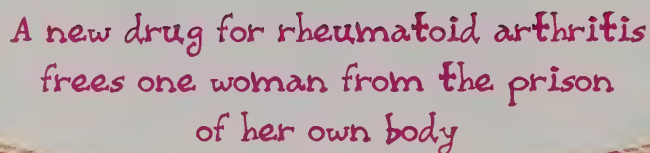 A new drug for rheumatoid arthritis
frees one woman from the prison
of her own body